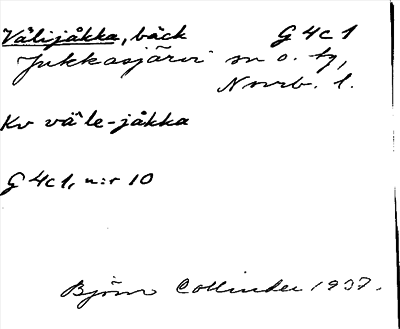 Välijåkka, bäck G4c1
Jukkasjärvi sn o. tg,
Norrb. l.
Kv väˈle-jåkka
G4c1, n:r 10
Björn Collinder 1937.